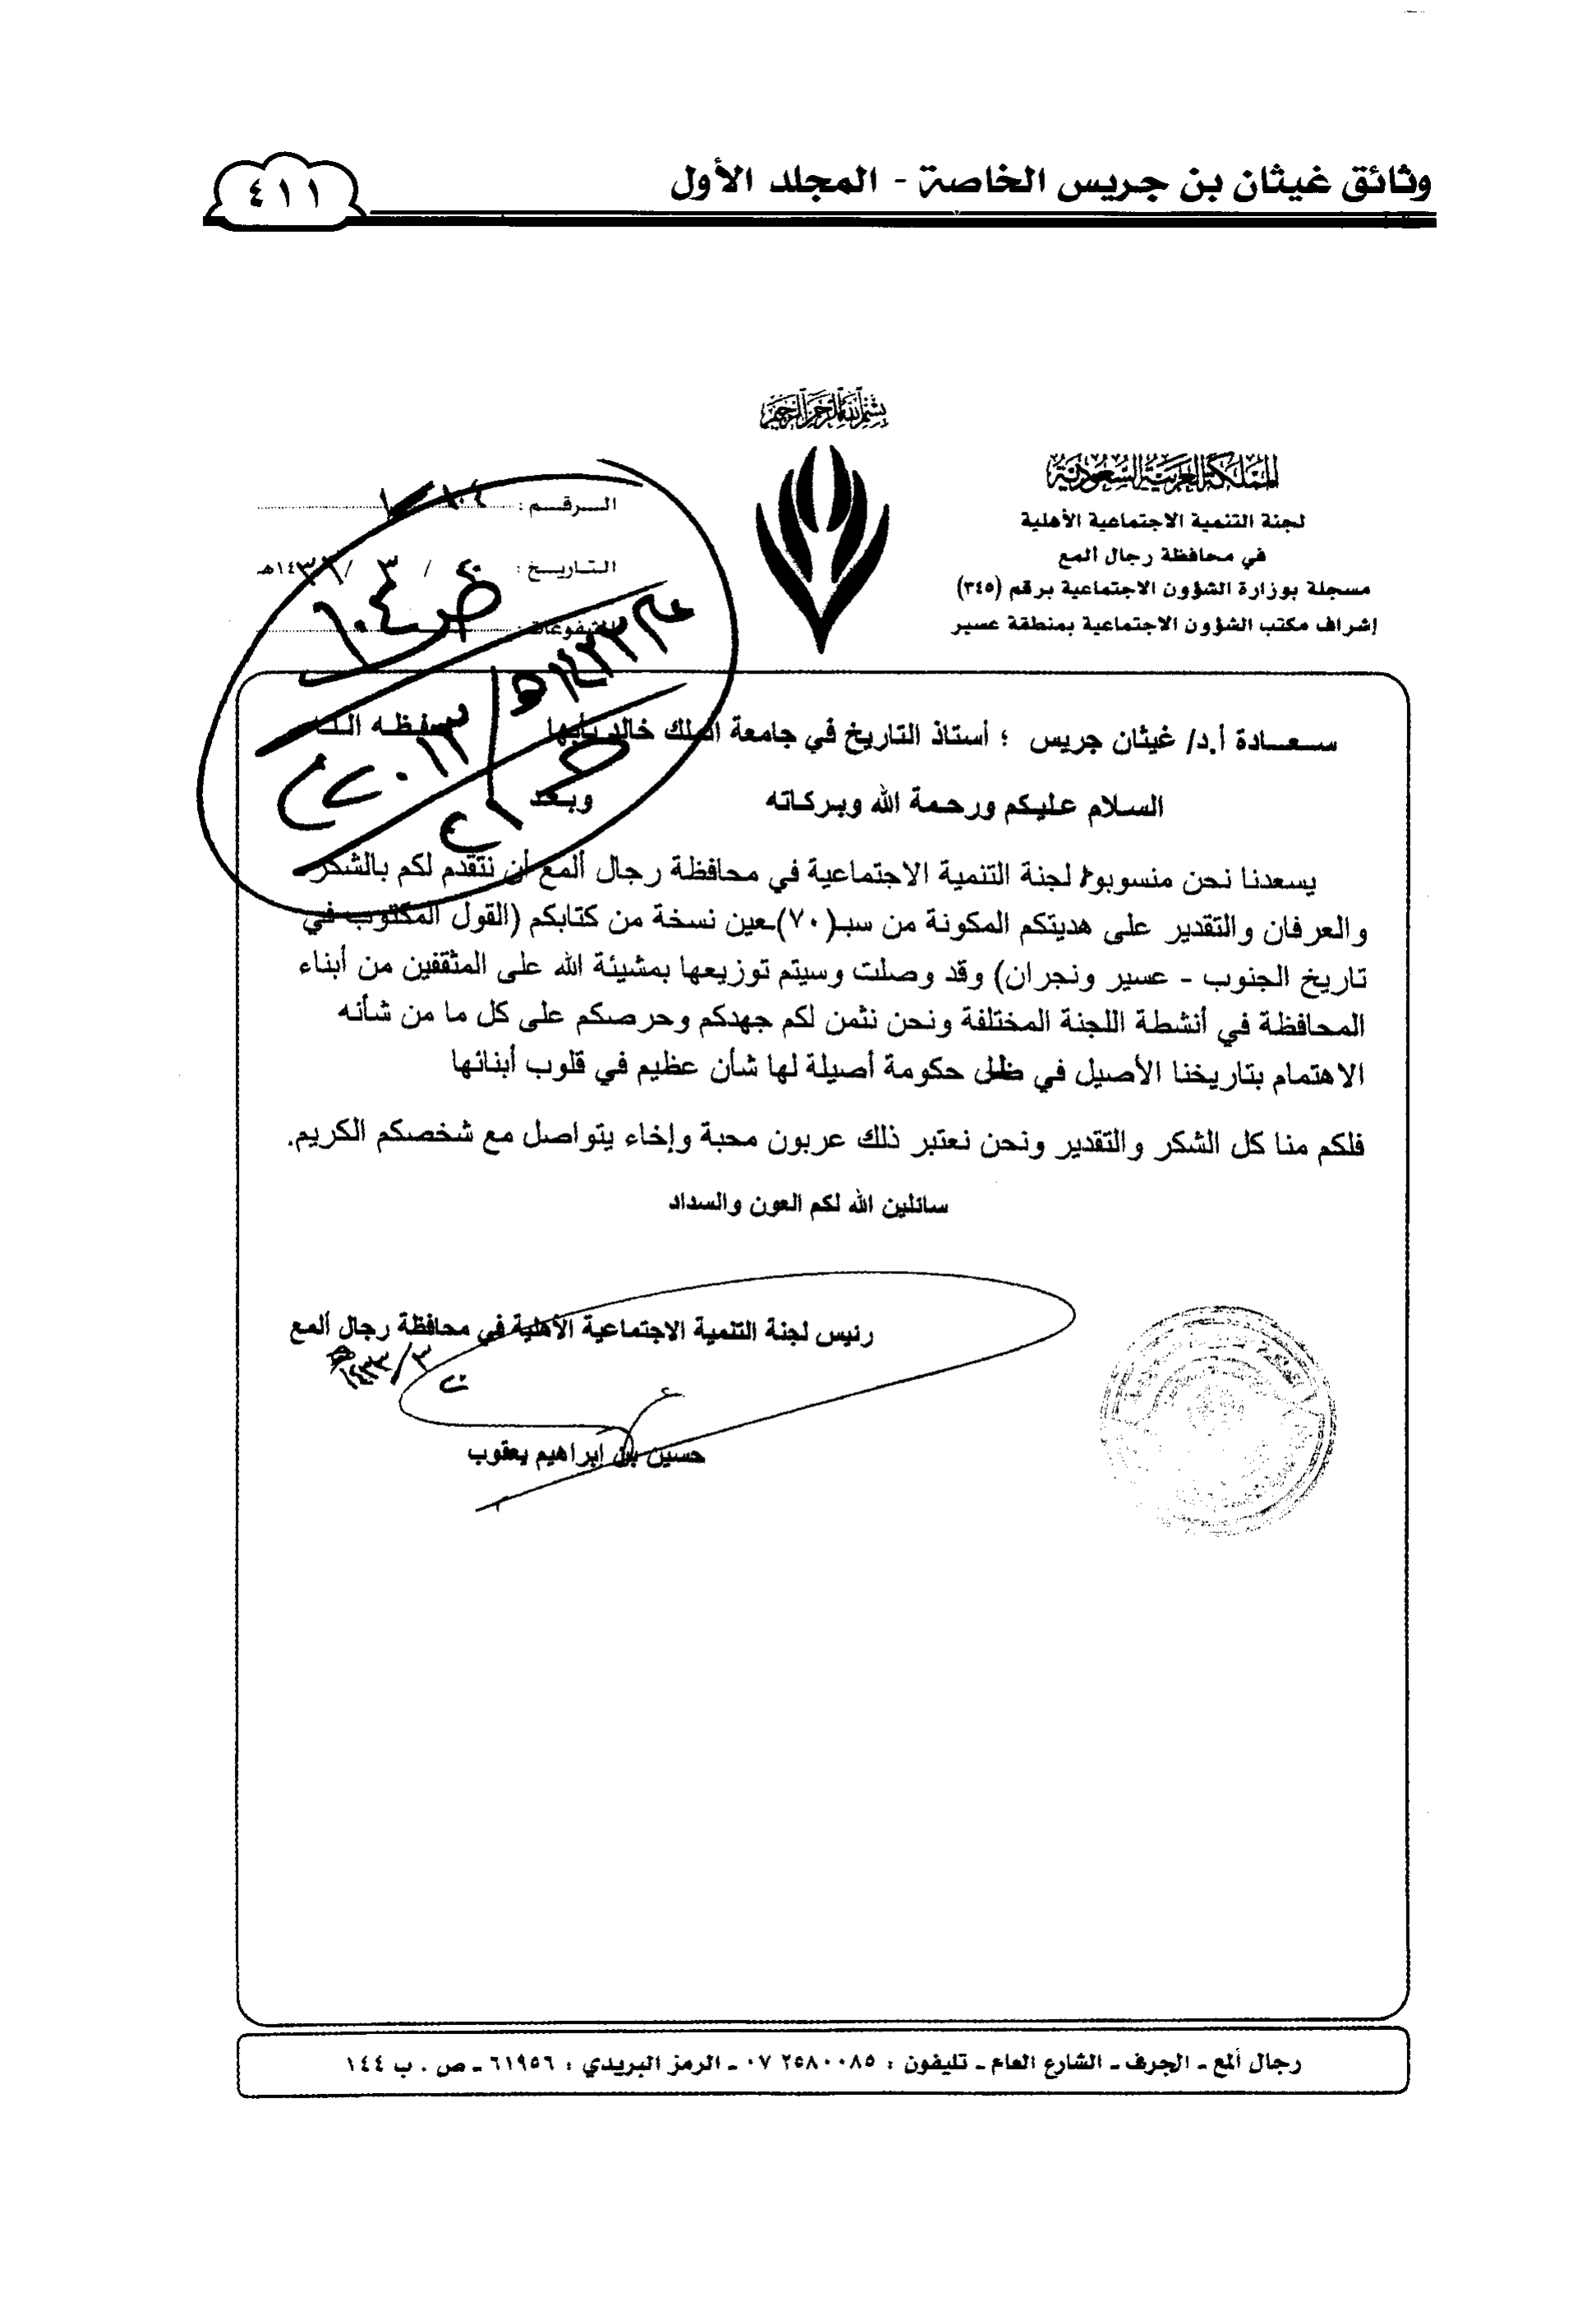 وثائق غيثان بن جريس الخاصة - المجلد الأول
٤١١
بسم الله الرحمن الرحيم
المملكة العربية السعودية
لجنة التنمية الاجتماعية الأهلية
في محافظة رجال المع
مسجلة بوزارة الشؤون الاجتماعية برقم (٣٤٥)
إشراف مكتب الشؤون الاجتماعية بمنطقة عسير
الـرقـم :
التـاريـخ : ٢٠ / ٣ / ١٤٣٣هـ
المشفوعات :
سـعـادة أ.د/ غيثان جريس ؛ أستاذ التاريخ في جامعة الملك خالد بأبها حفظه الله
السلام عليكم ورحمة الله وبركاته وبعد
يسعدنا نحن منسوبوا لجنة التنمية الاجتماعية في محافظة رجال ألمع أن نتقدم لكم بالشكر
والعرفان والتقدير على هديتكم المكونة من سبـ(٧٠)ـعين نسخة من كتابكم (القول المكتوب في
تاريخ الجنوب - عسير ونجران) وقد وصلت وسيتم توزيعها بمشيئة الله على المثقفين من أبناء
المحافظة في أنشطة اللجنة المختلفة ونحن نثمن لكم جهدكم وحرصكم على كل ما من شأنه
الاهتمام بتاريخنا الأصيل في ظل حكومة أصيلة لها شأن عظيم في قلوب أبنائها
فلكم منا كل الشكر والتقدير ونحن نعتبر ذلك عربون محبة وإخاء يتواصل مع شخصكم الكريم.
سائلين الله لكم العون والسداد
رئيس لجنة التنمية الاجتماعية الأهلية في محافظة رجال ألمع
٢٠/٣/١٤٣٣هـ
حسين بن إبراهيم يعقوب
رجال ألمع ـ الجرف ـ الشارع العام ـ تليفون : ٢٥٨٠٠٨٥ ٠٧ ـ الرمز البريدي : ٦١٩٥٦ ـ ص . ب ١٤٤